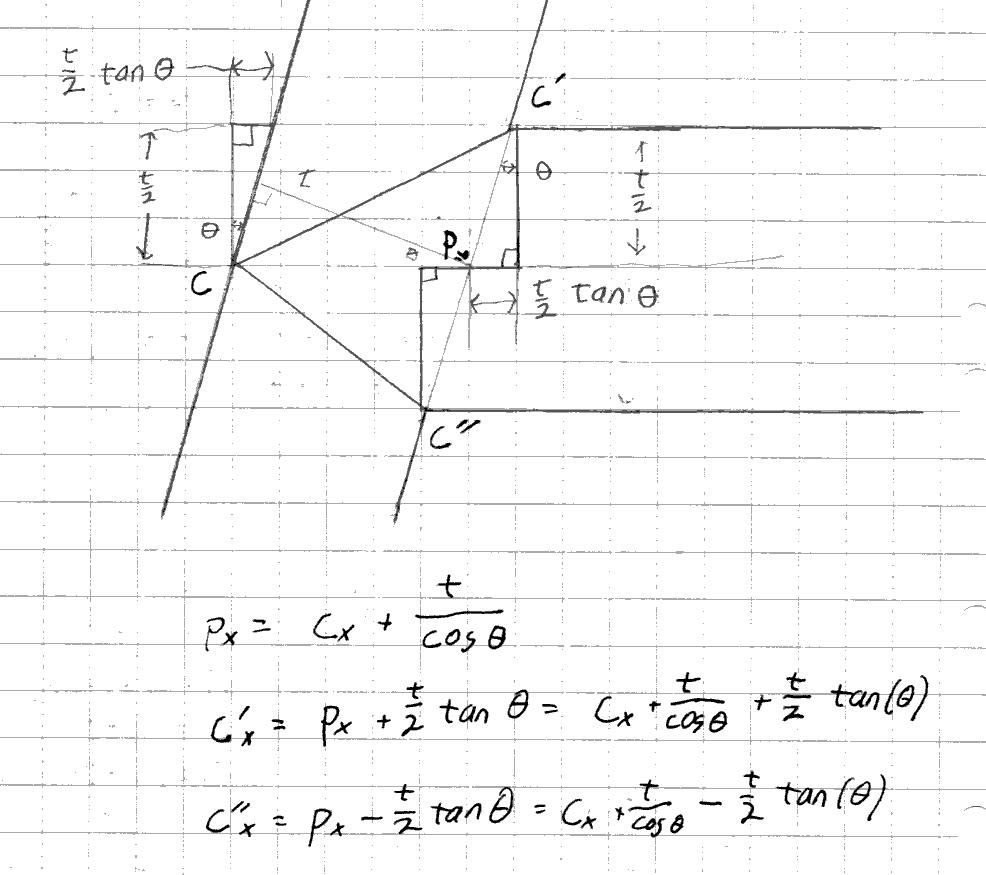 t/2 tan θ
C′
t/2
t
θ
t/2
θ
θ
P
C
t/2 tan θ
C″
Px = Cx + t/cos θ
C′x = Px + t/2 tan θ = Cx + t/cos θ + t/2 tan(θ)
C″x = Px − t/2 tan θ = Cx + t/cos θ − t/2 tan(θ)